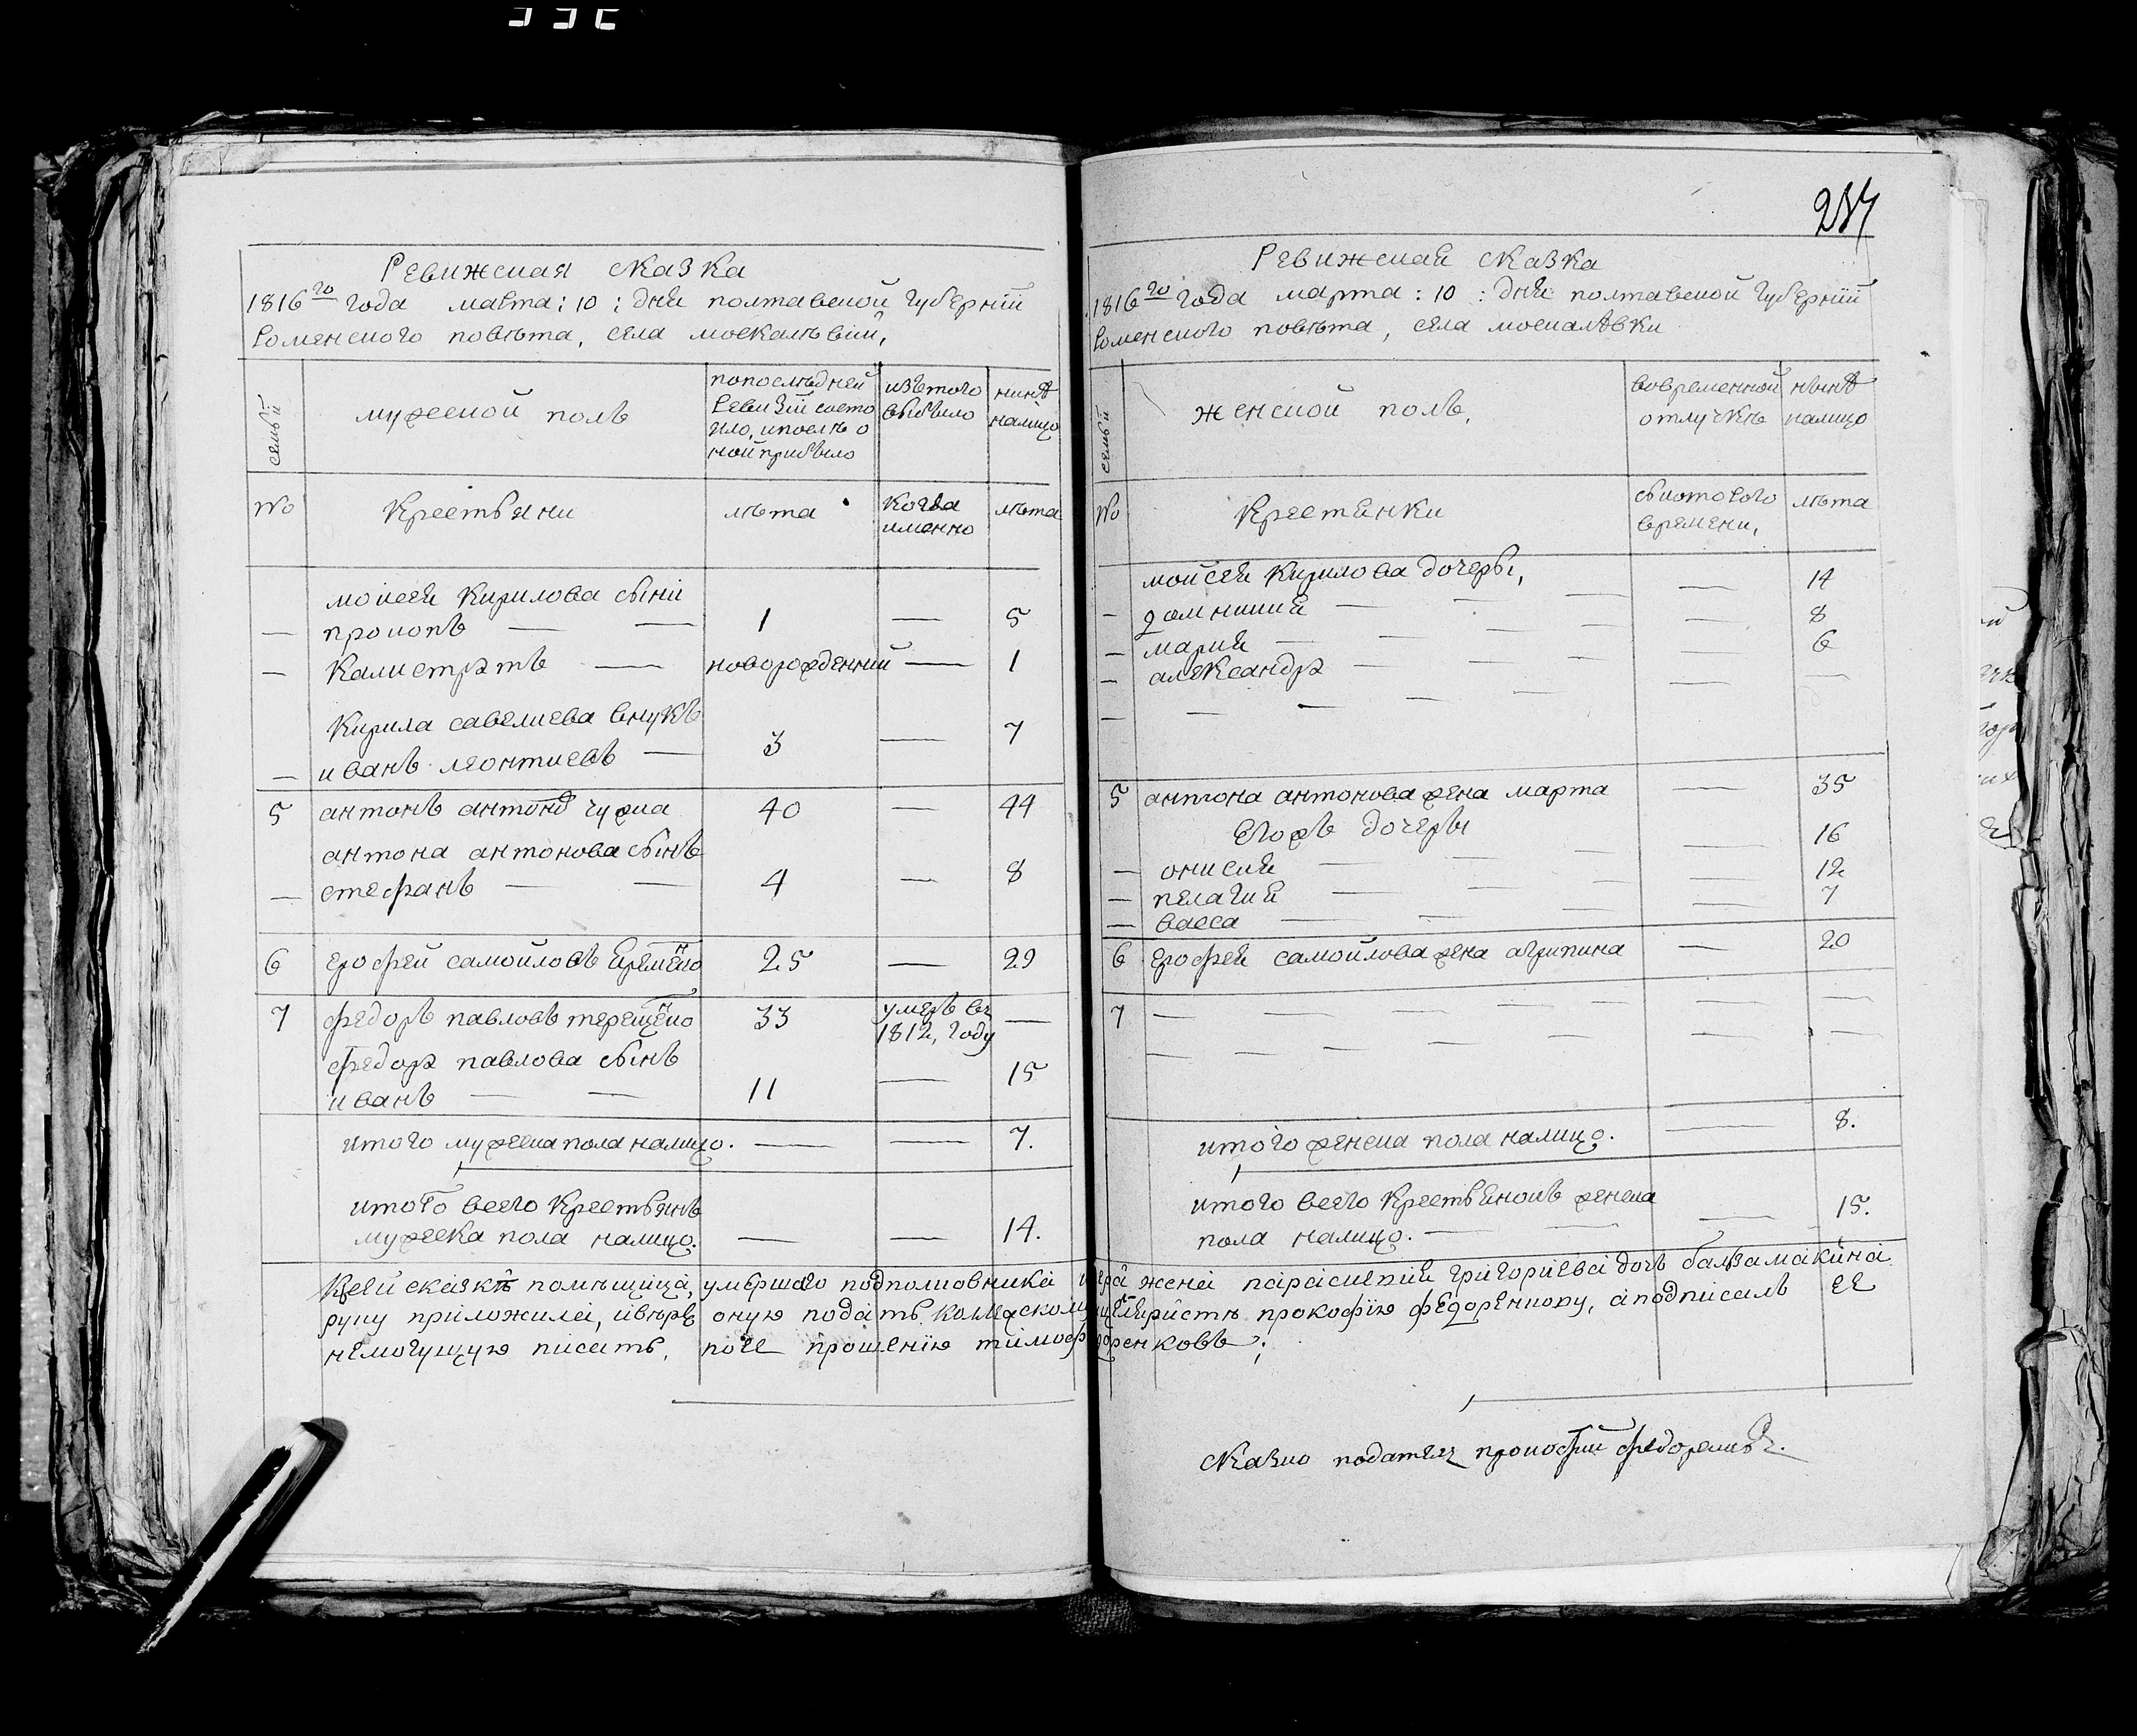 237
Ревижская сказка
1816го года марта: 10 : дня полтавской губернїи
роменского повѣта, села москалѣвки,
семьи
мужеской полъ
попоследней
Ревизїи состо
яло, ипослѣ о
ной прибыло
изъ того
выбыло
нинѣ
налицо
№
Крестьяни
лѣта
Когда
именно
лѣта
моисея Кирилова сыни
— прокопъ — — 1 — 5
— Калистратъ — новорожденний — 1
Кирила савелиева внукъ
— иванъ леонтиевъ — 3 — 7
5 антонъ антонов чужка 40 — 44
антона антонова сынъ
— стефанъ — — 4 — 8
6 ерофей самойловъ Еременко 25 — 29
7 федоръ павловъ терещенко 33 умеръ въ —
1812, году
федора павлова сынъ
иванъ — — 11 — 15
итого мужеска пола налицо. — — 7.
итого всего Крестьянъ
мужеска пола налицо. — — 14.
Ревижская сказка
1816го года марта : 10 : дня полтавской губернїи
роменского повѣта, села москалѣвки
семьи
женской полъ,
вовременной
отлучкѣ
нынѣ
налицо
№
Крестянки
съкоторого
времени,
лѣта
моисея Кирилова дочеры,
— домникия — — — — 14
— мария — — — — 8
— александра — — — — 6
— — — — — — —
5 антона антонова жена марта — 35
Егожъ дочеры
— онисия — — — — 16
— пелагия — — — — 12
— васса — — — — 7
6 ерофея самойлова жена агрипина — 20
7 — — — — —
— — — — — — —
итого женска пола налицо. — 8.
итого всего Крестьянокъ женска
пола налицо. — — — 15.
Ксей сказкѣ помѣщица, умершаго подполковника жена параскепия григориева дочь балзамакина
руку приложила, ивѣре оную подать прокофїю федоренкову, аподписалъ ее
немогущую писать, по ее прошенїю
Сказко податель прокофий федоренко.